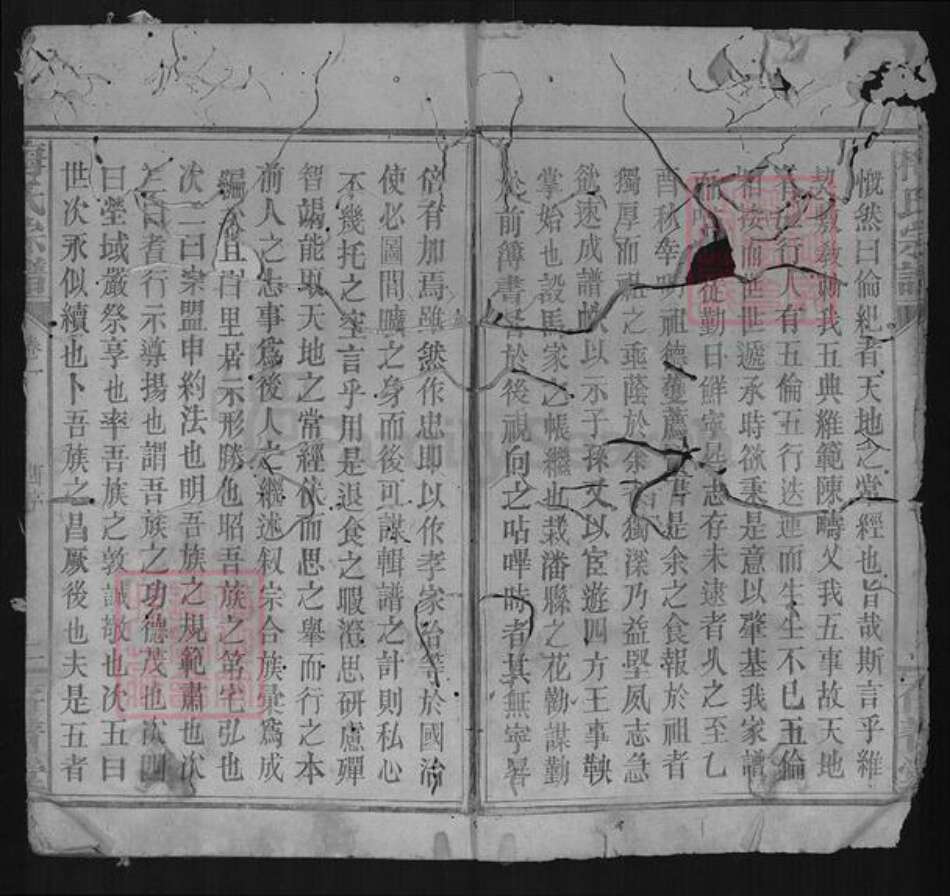 慨然曰倫紀者天地之常經也旨哉斯言乎維
敦我五典維範陳疇乂我五事故天地
行人有五倫五行迭運而生生不已五倫
相接而世世遞承時欲秉是意以肇基我家譜
從勤日鮮寧是志存未逮者久之至乙
酉秋幸 祖德 是余之食報於祖者
獨厚而祖之垂蔭於余者獨深乃益堅夙志急
欲速成譜帙以示子孫又以宦遊四方王事鞅
掌始也設馬家之帳繼也栽潘縣之花勤謀勤
於前簿書 於後視向之呫嗶時者其無寧晷
倍有加焉雖然作忠即以作孝家治等於國治
使必圖間曠之身而後可謀輯譜之計則私心
不幾托之空言乎用是退食之暇澄思研慮殫
智竭能取天地之常經依而思之舉而行之本
前人之志事為後人之繼述叙宗合族彙為成
編 里居示形勝也昭吾族之第宅弘也
次二曰宗盟申約法也明吾族之規範肅也次
三曰 者行示導揚也謂吾族之功德茂也次四
曰塋域嚴祭享也率吾族之敦誠敬也次五曰
世次永似續也卜吾族之昌厥後也夫是五者
氏宗譜
卷一